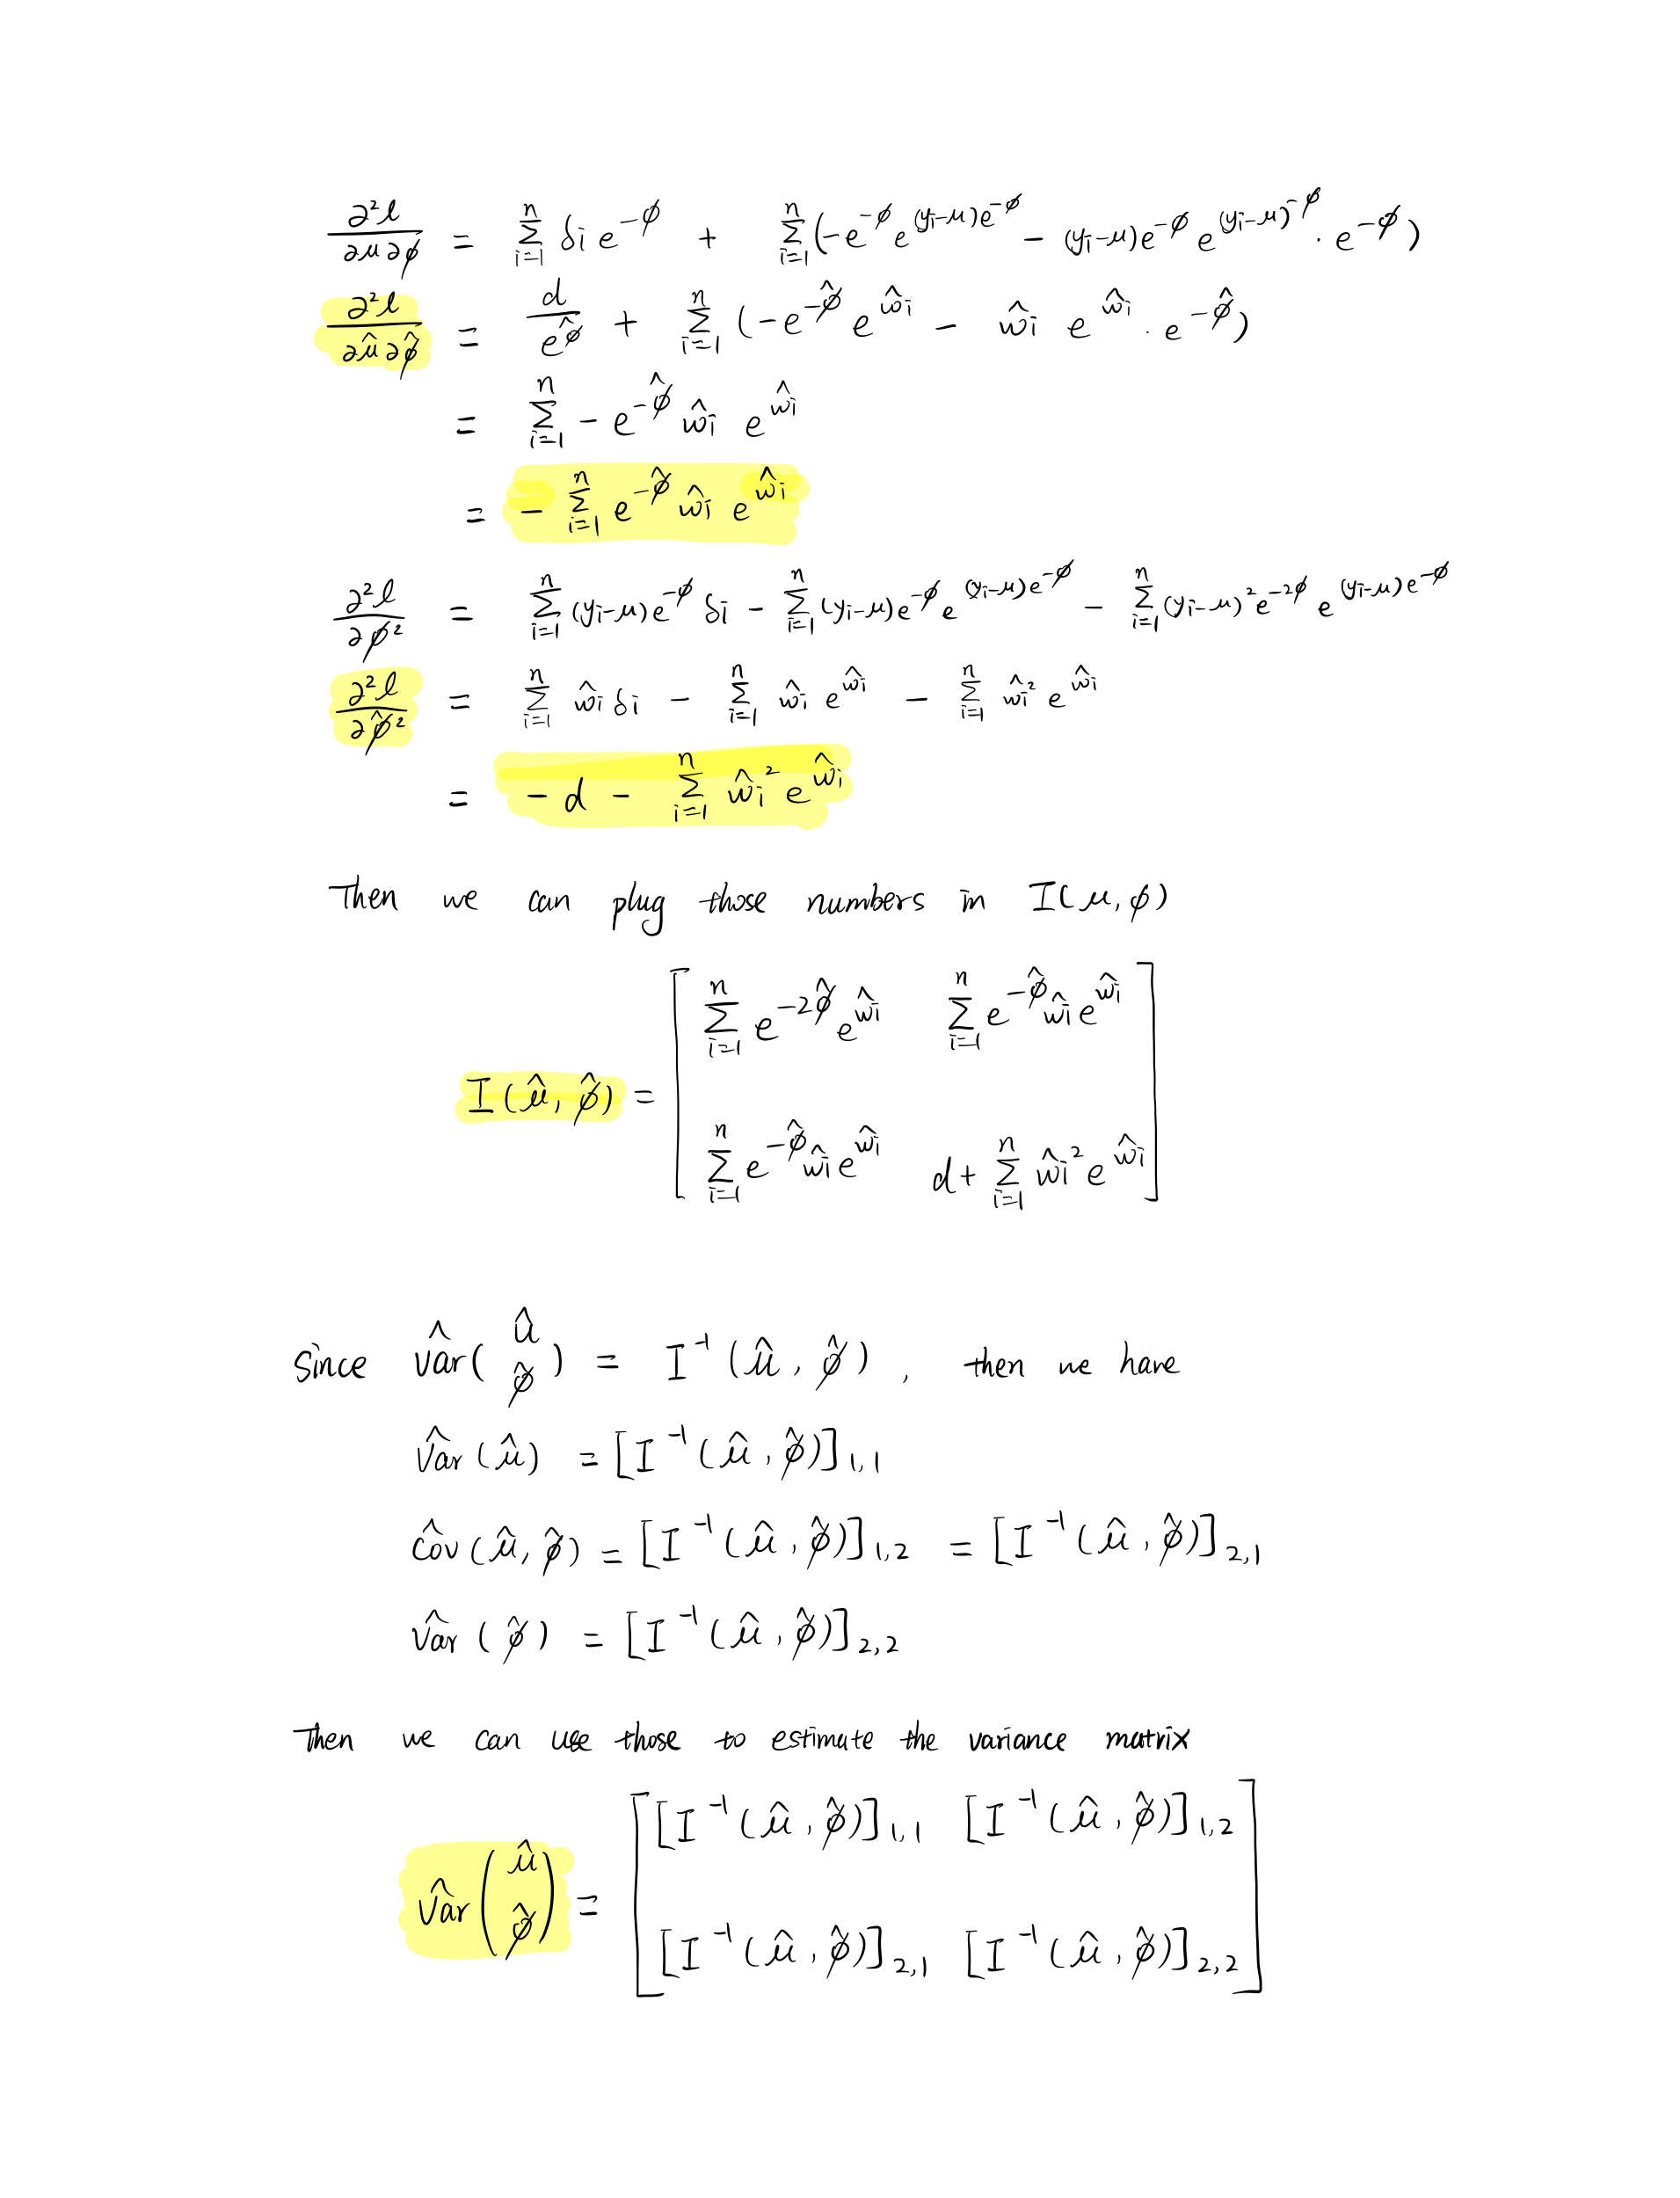 ∂²ℓ/∂μ∂φ = Σ_{i=1}^{n} δi e^{-φ} + Σ_{i=1}^{n} (-e^{-φ} e^{(yi-μ)e^{-φ}} - (yi-μ)e^{-φ} e^{(yi-μ)^{-φ}} · e^{-φ})
∂²ℓ/∂μ̂∂φ̂ = d/e^{φ̂} + Σ_{i=1}^{n} (-e^{-φ̂} e^{ŵi} - ŵi e^{ŵi} · e^{-φ̂})
= Σ_{i=1}^{n} - e^{-φ̂} ŵi e^{ŵi}
= - Σ_{i=1}^{n} e^{-φ̂} ŵi e^{ŵi}
∂²ℓ/∂φ² = Σ_{i=1}^{n} (yi-μ)e^{-φ} δi - Σ_{i=1}^{n} (yi-μ)e^{-φ} e^{(yi-μ)e^{-φ}} - Σ_{i=1}^{n} (yi-μ)² e^{-2φ} e^{(yi-μ)e^{-φ}}
∂²ℓ/∂φ̂² = Σ_{i=1}^{n} ŵi δi - Σ_{i=1}^{n} ŵi e^{ŵi} - Σ_{i=1}^{n} ŵi² e^{ŵi}
= - d - Σ_{i=1}^{n} ŵi² e^{ŵi}
Then we can plug those numbers in I(μ, φ)
Σ_{i=1}^{n} e^{-2φ̂} e^{ŵi} Σ_{i=1}^{n} e^{-φ̂} ŵi e^{ŵi}
I(μ̂, φ̂) =
Σ_{i=1}^{n} e^{-φ̂} ŵi e^{ŵi} d + Σ_{i=1}^{n} ŵi² e^{ŵi}
Since v̂ar(û φ̂) = I⁻¹(μ̂, φ̂), then we have
V̂ar(μ̂) = [I⁻¹(μ̂, φ̂)]1,1
Ĉov(μ̂, φ̂) = [I⁻¹(μ̂, φ̂)]1,2 = [I⁻¹(μ̂, φ̂)]2,1
V̂ar(φ̂) = [I⁻¹(μ̂, φ̂)]2,2
Then we can use those to estimate the variance matrix
[I⁻¹(μ̂, φ̂)]1,1 [I⁻¹(μ̂, φ̂)]1,2
V̂ar(μ̂ φ̂) =
[I⁻¹(μ̂, φ̂)]2,1 [I⁻¹(μ̂, φ̂)]2,2